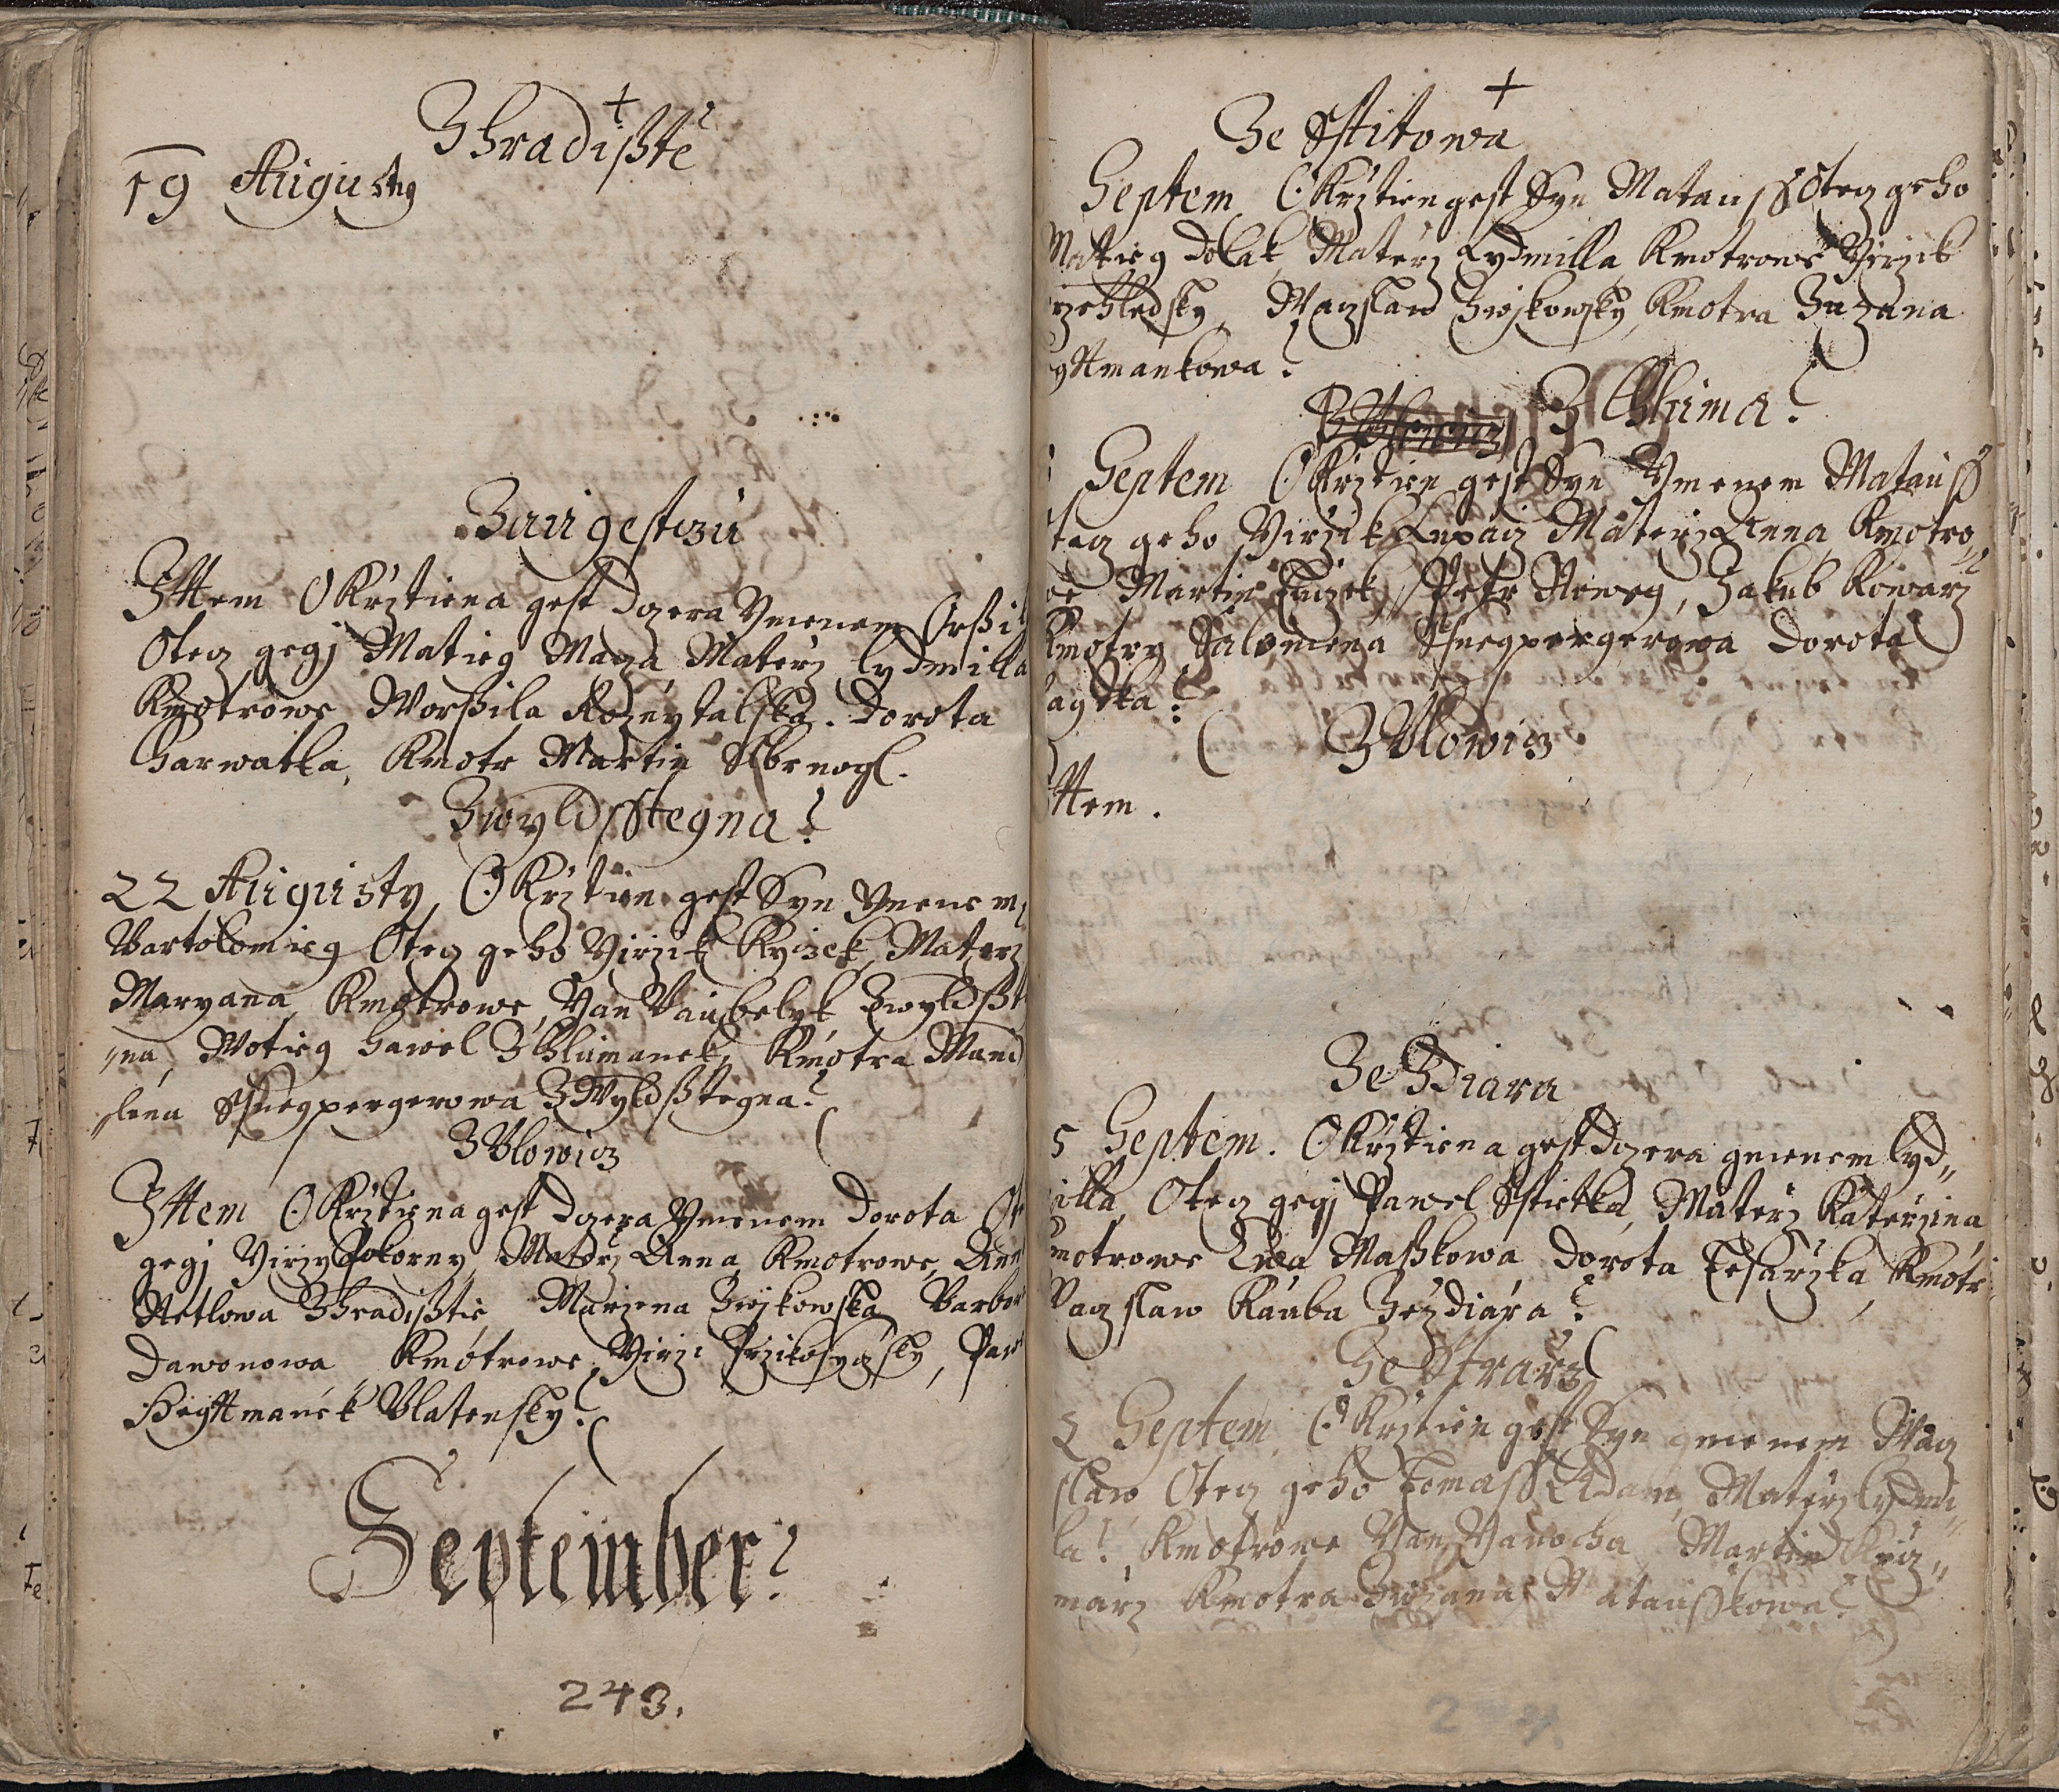 Zhradisstě
19 Augusty
Zaugestczú
Ittem Okrztiena gest Dczera Ymenem Orssil
Otecz gegj Matieg Maza, Materz Lydmilla
Kmotrowe Worssila Rozeytalska. Dorota
Harwatka, Kmotr Martin
Zwyldsstegna
22 Augusty, Okrztien gest Syn Ymenem
Bartolomieg Otecz geho Yirzik Kyzek, Materz
Maryana, Kmotrowe, Yan Zwyldsst
na, Wotieg Hawel Zchlumanek, Kmotra Mand
slena Ssnegpergerowa Z Wyldsstegna
Z Blowicz
Ittem Okrztiena gest Dczera Ymenem Dorota Ot
gegj Yirzy Pokorny, Materz Anna, Kmotrowe, Ann
Netlowa Zhradisstie, Marzena Zwjkowska Barbor
Dawonowa Kmotrowe, Yirzi Przikosyczsky, Paw
Heyttmanek Blatensky
September
243.
Ze Sstitowa
Septem Okrztien gest Syn Matauss Otecz geho
Matieg Dolak, Materz Lydmilla, Kmotrowe Yirzik
rzehledsky, Waczslaw Zwjkowsky, Kmotra Zuzana
yttmankowa
Z Chluma
Septem Okrztien gest Syn Ymenem Matauss
tecz geho Yirzik Lupacz Materz Anna, Kmotro
we Martin Petr Neweg, Jakub Kowarz
Kmotry Salomena Ssnegpergerowa Dorota
agtka
Z Blowicz
Ittem.
Ze Zdiara
5 Septem. Okrztiena gest Dczera gmenem Lyd
illa, Otecz gegj Pawel Sstietka, Materz Katerzina,
motrowe Ewa Masskowa Dorota Tesarzka, Kmotr
Waczslaw Kauba Zezdiára
Ze Strarz
2 Septem, Okrztien gest Syn gmenem Wacz
slaw Otecz geho Tomass Adam, Materz Lydmi
la Kmotrowe Yan Yanocha Martin Krcz
marz Kmotra Zuzana Matausskowa